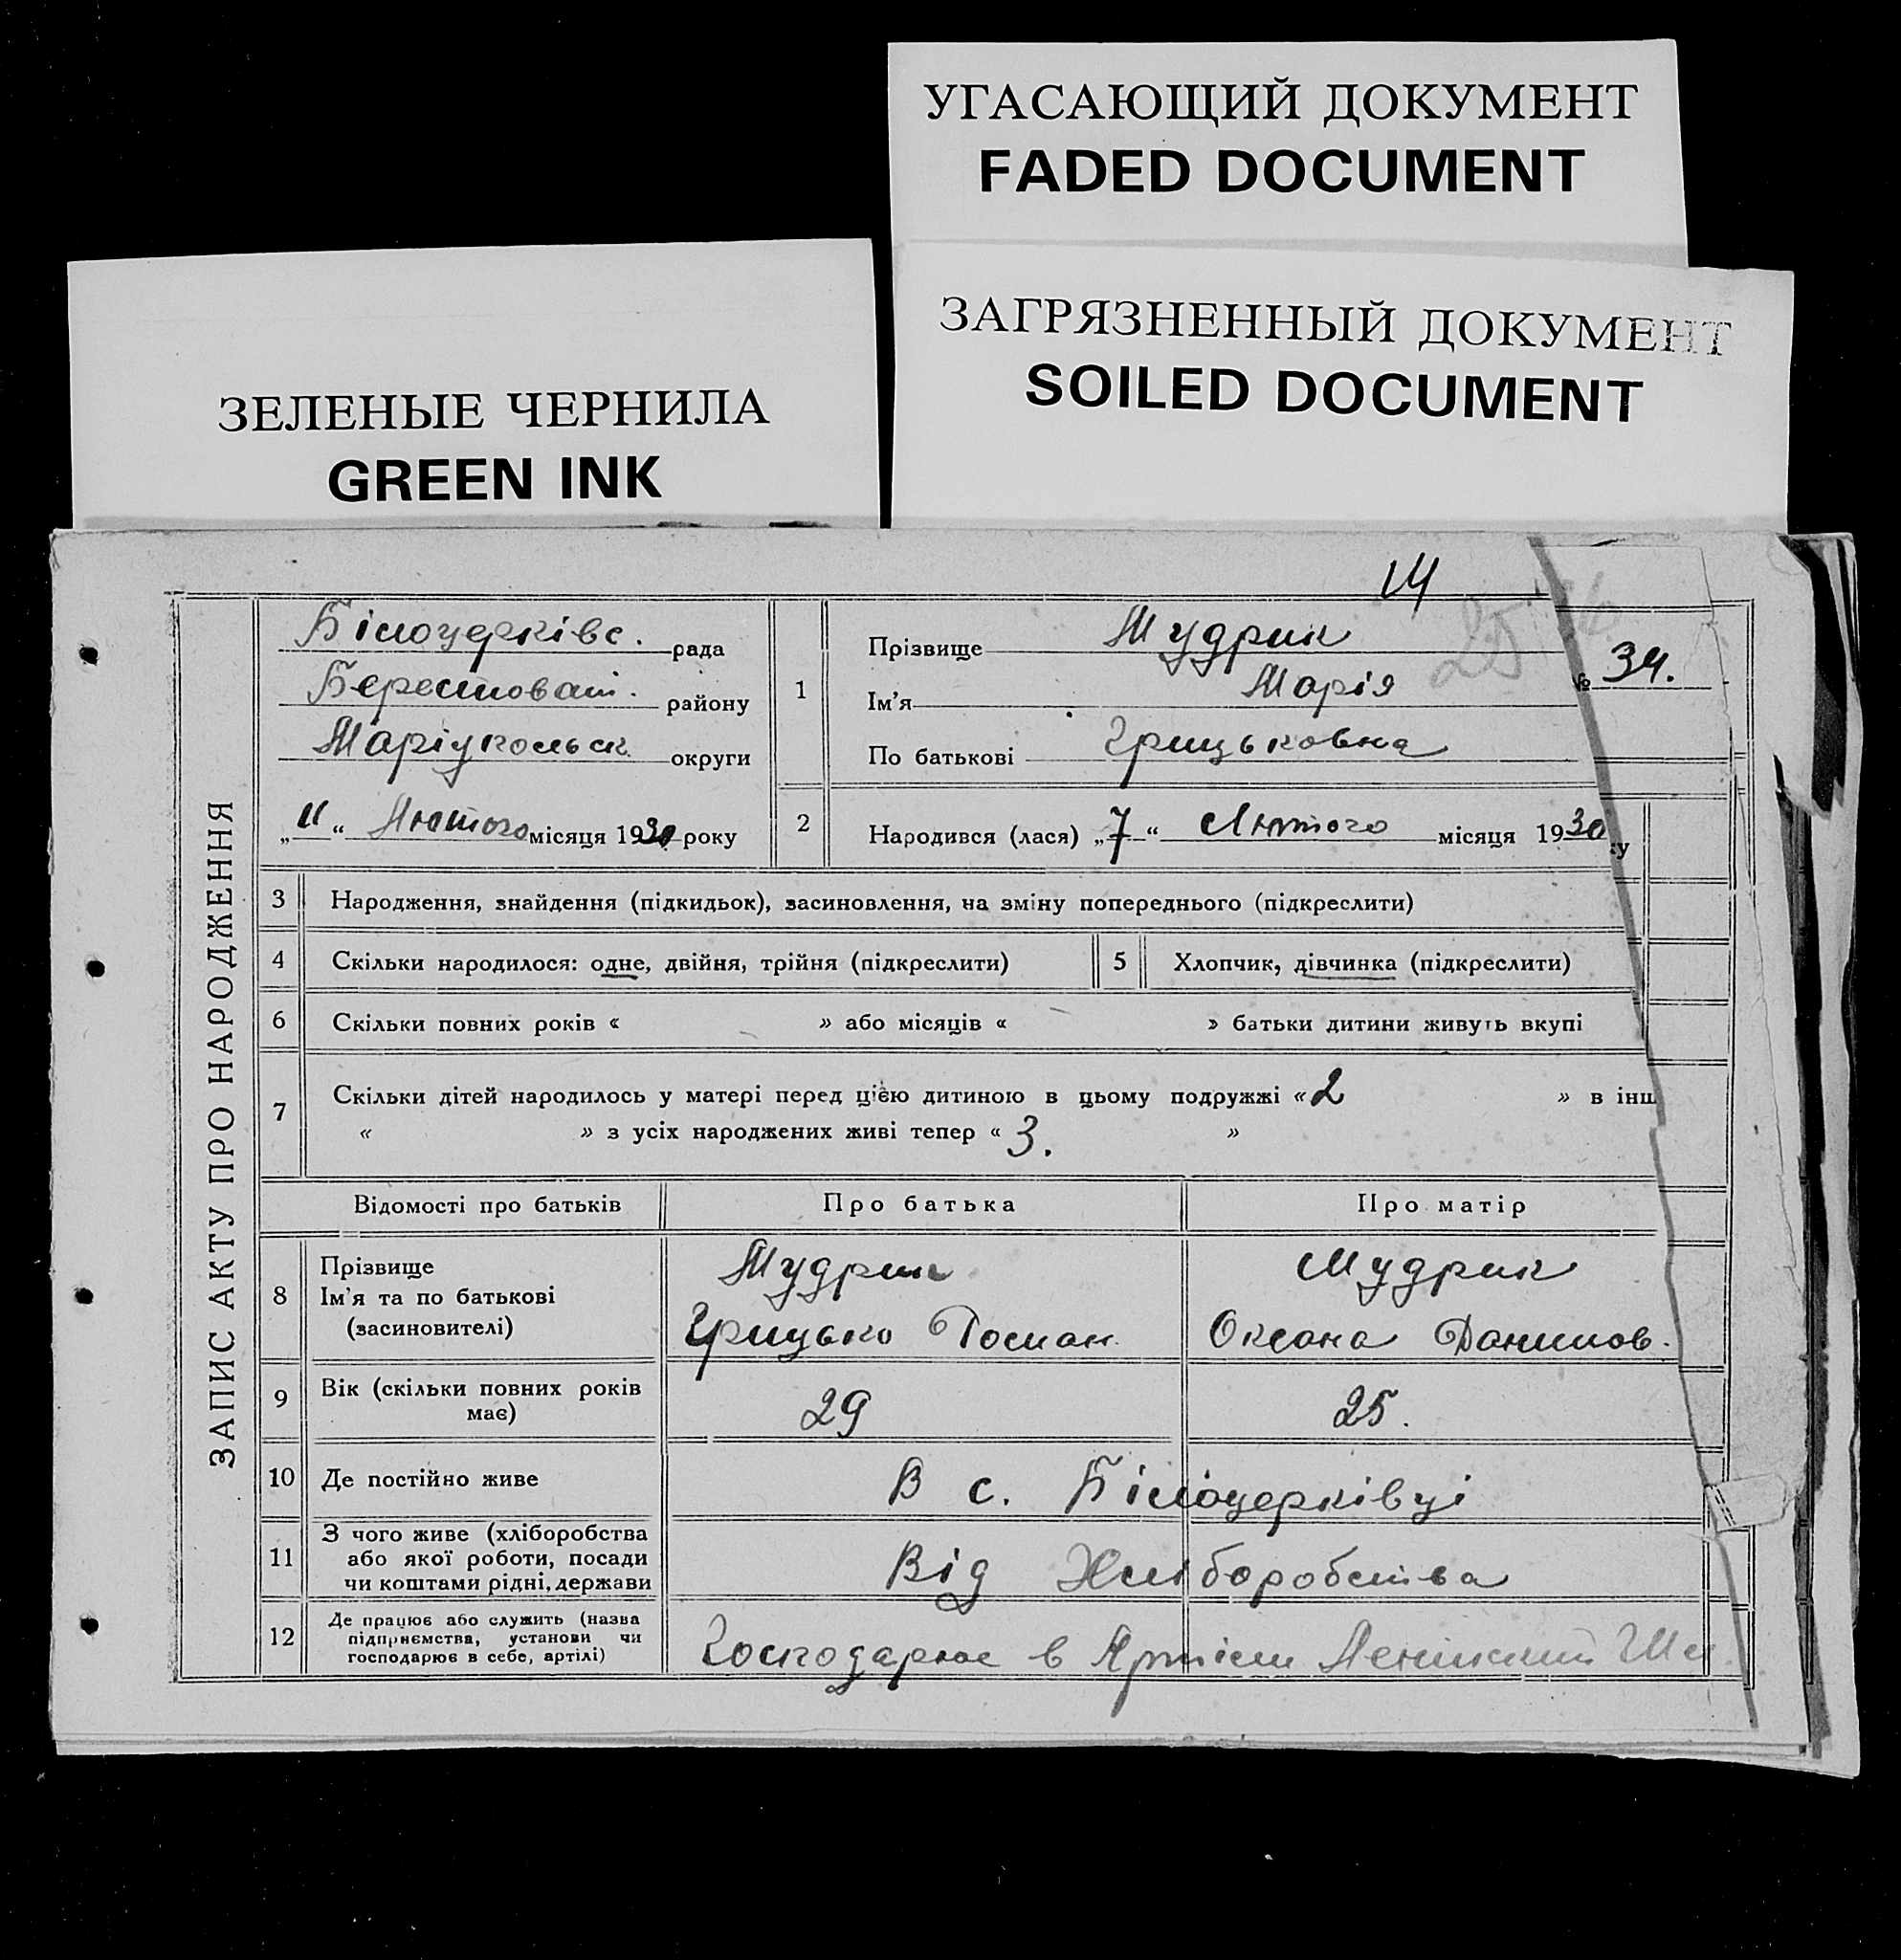 УГАСАЮЩИЙ ДОКУМЕНТ
FADED DOCUMENT
ЗАГРЯЗНЕННЫЙ ДОКУМЕНТ
SOILED DOCUMENT
ЗЕЛЕНЫЕ ЧЕРНИЛА
GREEN INK
14
ЗАПИС АКТУ ПРО НАРОДЖЕННЯ
Білоцерківс. рада
Берестоват. району
Маріупольск округи
„11“ Лютого місяця 1930 року
1
Прізвище Мудрик
Ім'я Марія
По батькові Грицьковна
№ 34.
2 Народився (лася) „7“ Лютого місяця 1930
3 Народження, знайдення (підкидьок), засиновлення, на зміну попереднього (підкреслити)
4 Скільки народилося: одне, двійня, трійня (підкреслити) 5 Хлопчик, дівчинка (підкреслити)
6 Скільки повних років « » або місяців « » батьки дитини живуть вкупі
7 Скільки дітей народилось у матері перед цією дитиною в цьому подружжі «2 » в інш
« » з усіх народжених живі тепер « 3. »
Відомості про батьків Про батька Про матір
8 Прізвище Мудрик Мудрик
Ім'я та по батькові Грицько Роман. Оксана Данилов.
(засиновителі)
9 Вік (скільки повних років має) 29 25.
10 Де постійно живе В с. Білоцерківці
11 З чого живе (хліборобства
або якої роботи, посади
чи коштами рідні, держави Від Хліборобства
12 Де працює або служить (назва
підприємства, установи чи
господарює в себе, артілі) Господарює в Артіли